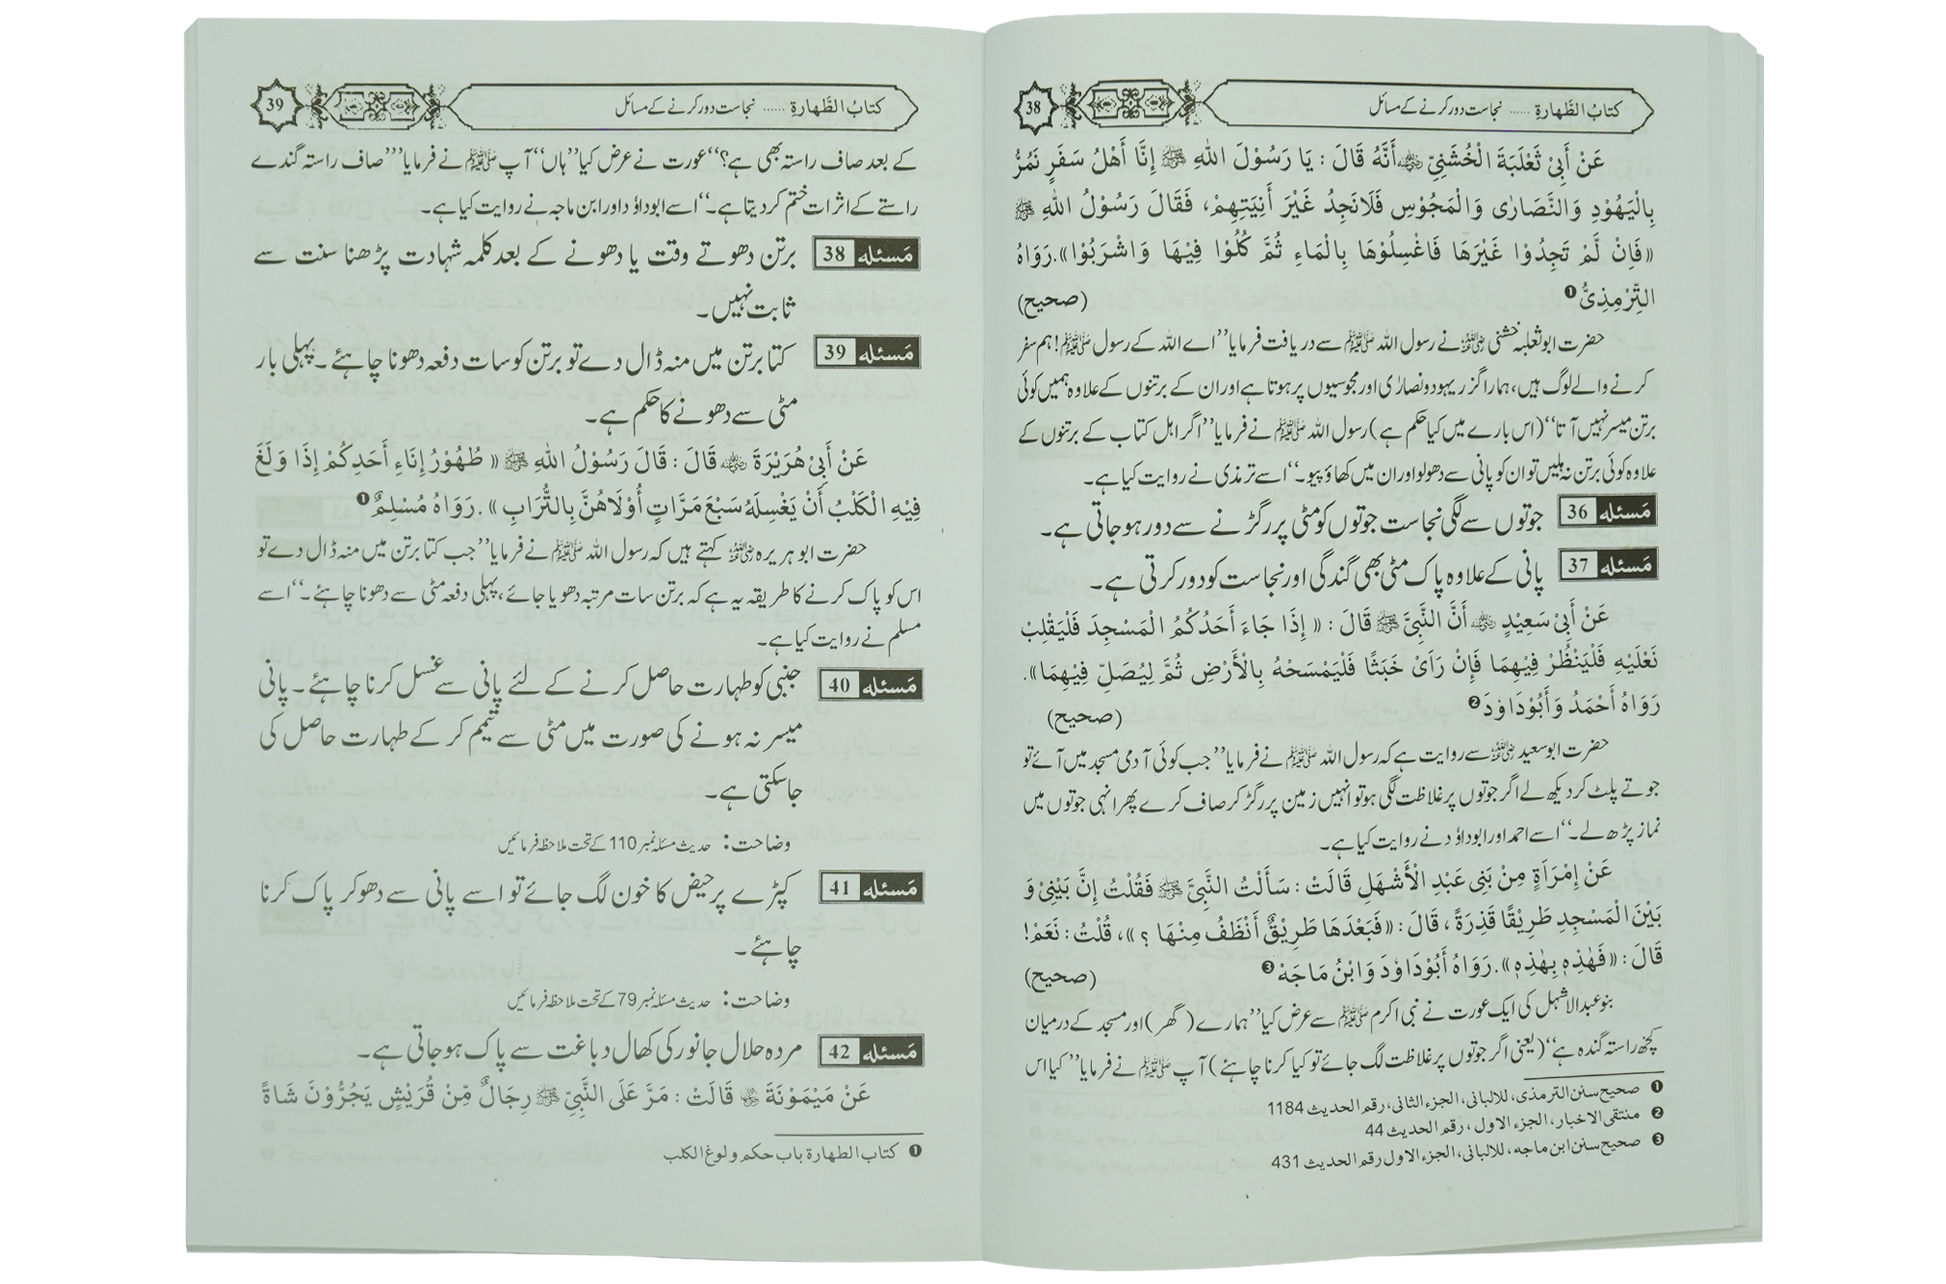 38
كتابُ الطَّهارةِ ...... نجاست دور کرنے کے مسائل
عَنْ أَبِيْ ثَعْلَبَةَ الْخُشَنِيِّ ؓ أَنَّهُ قَالَ : يَا رَسُوْلَ اللهِ ﷺ إِنَّا أَهْلُ سَفَرٍ نَمُرُّ
بِالْيَهُوْدِ وَالنَّصَارٰى وَالْمَجُوْسِ فَلَانَجِدُ غَيْرَ أٰنِيَتِهِمْ، فَقَالَ رَسُوْلُ اللهِ ﷺ
«فَاِنْ لَّمْ تَجِدُوْا غَيْرَهَا فَاغْسِلُوْهَا بِالْمَاءِ ثُمَّ كُلُوْا فِيْهَا وَاشْرَبُوْا».رَوَاهُ
التِّرْمِذِيُّ❶ (صحیح)
حضرت ابوثعلبہ خشنی ؓ نے رسول اللہ ﷺ سے دریافت فرمایا ’’اے اللہ کے رسول ﷺ! ہم سفر
کرنے والے لوگ ہیں، ہمارا گزر یہود و نصاریٰ اور مجوسیوں پر ہوتا ہے اور ان کے برتنوں کے علاوہ ہمیں کوئی
برتن میسر نہیں آتا‘‘ (اس بارے میں کیا حکم ہے) رسول اللہ ﷺ نے فرمایا ’’اگر اہل کتاب کے برتنوں کے
علاوہ کوئی برتن نہ ملیں تو ان کو پانی سے دھو لو اور ان میں کھاؤ پیو۔‘‘ اسے ترمذی نے روایت کیا ہے۔
مَسئله 36 جوتوں سے لگی نجاست جوتوں کو مٹی پر رگڑنے سے دور ہو جاتی ہے۔
مَسئله 37 پانی کے علاوہ پاک مٹی بھی گندگی اور نجاست کو دور کرتی ہے۔
عَنْ أَبِيْ سَعِيْدٍ ؓ أَنَّ النَّبِيَّ ﷺ قَالَ : « إِذَا جَاءَ أَحَدُكُمُ الْمَسْجِدَ فَلْيَقْلِبْ
نَعْلَيْهِ فَلْيَنْظُرْ فِيْهِمَا فَإِنْ رَاَىٰ خَبَثًا فَلْيَمْسَحْهُ بِالْأَرْضِ ثُمَّ لِيُصَلِّ فِيْهِمَا».
رَوَاهُ أَحْمَدُ وَأَبُوْدَاوٗدَ❷ (صحیح)
حضرت ابوسعید ؓ سے روایت ہے کہ رسول اللہ ﷺ نے فرمایا ’’جب کوئی آدمی مسجد میں آئے تو
جوتے پلٹ کر دیکھ لے اگر جوتوں پر غلاظت لگی ہو تو انہیں زمین پر رگڑ کر صاف کرے پھر انہی جوتوں میں
نماز پڑھ لے۔‘‘ اسے احمد اور ابوداؤد نے روایت کیا ہے۔
عَنْ إِمْرَأَةٍ مِنْ بَنِى عَبْدِ الْأَشْهَلِ قَالَتْ : سَأَلْتُ النَّبِيَّ ﷺ فَقُلْتُ إِنَّ بَيْنِيْ وَ
بَيْنَ الْمَسْجِدِ طَرِيْقًا قَذِرَةً ، قَالَ : «فَبَعْدَهَا طَرِيْقٌ أَنْظَفُ مِنْهَا ؟ »، قُلْتُ : نَعَمْ!
قَالَ : «فَهٰذِهٖ بِهٰذِهٖ».رَوَاهُ أَبُوْدَاوٗدَ وَابْنُ مَاجَهْ❸ (صحیح)
بنوعبدالاشہل کی ایک عورت نے نبی اکرم ﷺ سے عرض کیا ’’ہمارے (گھر) اور مسجد کے درمیان
کچھ راستہ گندہ ہے‘‘ (یعنی اگر جوتوں پر غلاظت لگ جائے تو کیا کرنا چاہئے) آپ ﷺ نے فرمایا ’’کیا اس
❶ صحیح سنن الترمذی، للالبانی، الجزء الثانی، رقم الحدیث 1184
❷ منتقی الاخبار، الجزء الاول ، رقم الحدیث 44
❸ صحیح سنن ابن ماجه ، للالبانی، الجزء الاول رقم الحدیث 431
39
كتابُ الطَّهارةِ ...... نجاست دور کرنے کے مسائل
کے بعد صاف راستہ بھی ہے؟‘‘ عورت نے عرض کیا ’’ہاں‘‘ آپ ﷺ نے فرمایا ’’’صاف راستہ گندے
راستے کے اثرات ختم کر دیتا ہے۔‘‘ اسے ابوداؤد اور ابن ماجہ نے روایت کیا ہے۔
مَسئله 38 برتن دھوتے وقت یا دھونے کے بعد کلمہ شہادت پڑھنا سنت سے
ثابت نہیں۔
مَسئله 39 کتا برتن میں منہ ڈال دے تو برتن کو سات دفعہ دھونا چاہئے۔ پہلی بار
مٹی سے دھونے کا حکم ہے۔
عَنْ أَبِيْ هُرَيْرَةَ ؓ قَالَ : قَالَ رَسُوْلُ اللهِ ﷺ « طُهُوْرُ إِنَاءِ أَحَدِكُمْ إِذَا وَلَغَ
فِيْهِ الْكَلْبُ أَنْ يَغْسِلَهُ سَبْعَ مَرَّاتٍ أُوْلَاهُنَّ بِالتُّرَابِ» .رَوَاهُ مُسْلِمٌ❶
حضرت ابو ہریرہ ؓ کہتے ہیں کہ رسول اللہ ﷺ نے فرمایا ’’جب کتا برتن میں منہ ڈال دے تو
اس کو پاک کرنے کا طریقہ یہ ہے کہ برتن سات مرتبہ دھویا جائے، پہلی دفعہ مٹی سے دھونا چاہئے۔‘‘ اسے
مسلم نے روایت کیا ہے۔
مَسئله 40 جنبی کو طہارت حاصل کرنے کے لئے پانی سے غسل کرنا چاہئے۔ پانی
میسر نہ ہونے کی صورت میں مٹی سے تیمم کر کے طہارت حاصل کی
جاسکتی ہے۔
وضاحت: حدیث مسئلہ نمبر 110 کے تحت ملاحظہ فرمائیں
مَسئله 41 کپڑے پر حیض کا خون لگ جائے تو اسے پانی سے دھو کر پاک کرنا
چاہئے۔
وضاحت: حدیث مسئلہ نمبر 79 کے تحت ملاحظہ فرمائیں
مَسئله 42 مردہ حلال جانور کی کھال دباغت سے پاک ہو جاتی ہے۔
عَنْ مَيْمُوْنَةَ ؓ قَالَتْ : مَرَّ عَلَى النَّبِيِّ ﷺ رِجَالٌ مِّنْ قُرَيْشٍ يَجُرُّوْنَ شَاةً
❶ کتاب الطهارة باب حکم ولوغ الکلب